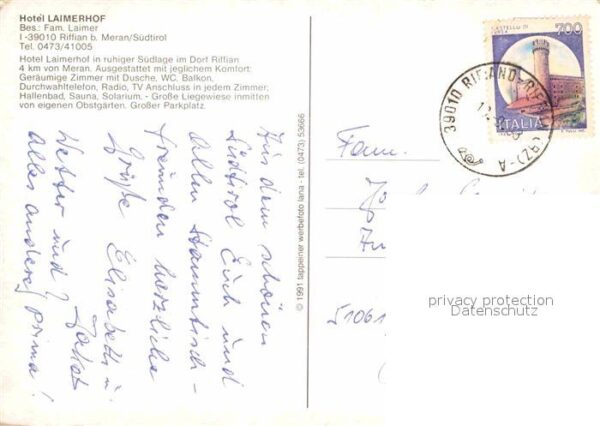 Hotel LAIMERHOF
Bes.: Fam. Laimer
I-39010 Riffian b. Meran/Südtirol
Tel. 0473/41005
Hotel Laimerhof in ruhiger Südlage im Dorf Riffian
4 km von Meran. Ausgestattet mit jeglichem Komfort:
Geräumige Zimmer mit Dusche, WC, Balkon,
Durchwahltelefon, Radio, TV Anschluss in jedem Zimmer,
Hallenbad, Sauna, Solarium. - Große Liegewiese inmitten
von eigenen Obstgärten. Großer Parkplatz.
Aus dem schönen
Südtirol Euch und
allen Stammtisch-
freunden herzliche
Grüße Elisabeth u.
Jakob
Wetter und
alles andere prima!
© 1991 tappeiner werbefoto lana - tel. (0473) 53666
Fam.
51061
CASTELLO DI
700
ITALIA
39010 (BZ)-A
privacy protection
Datenschutz